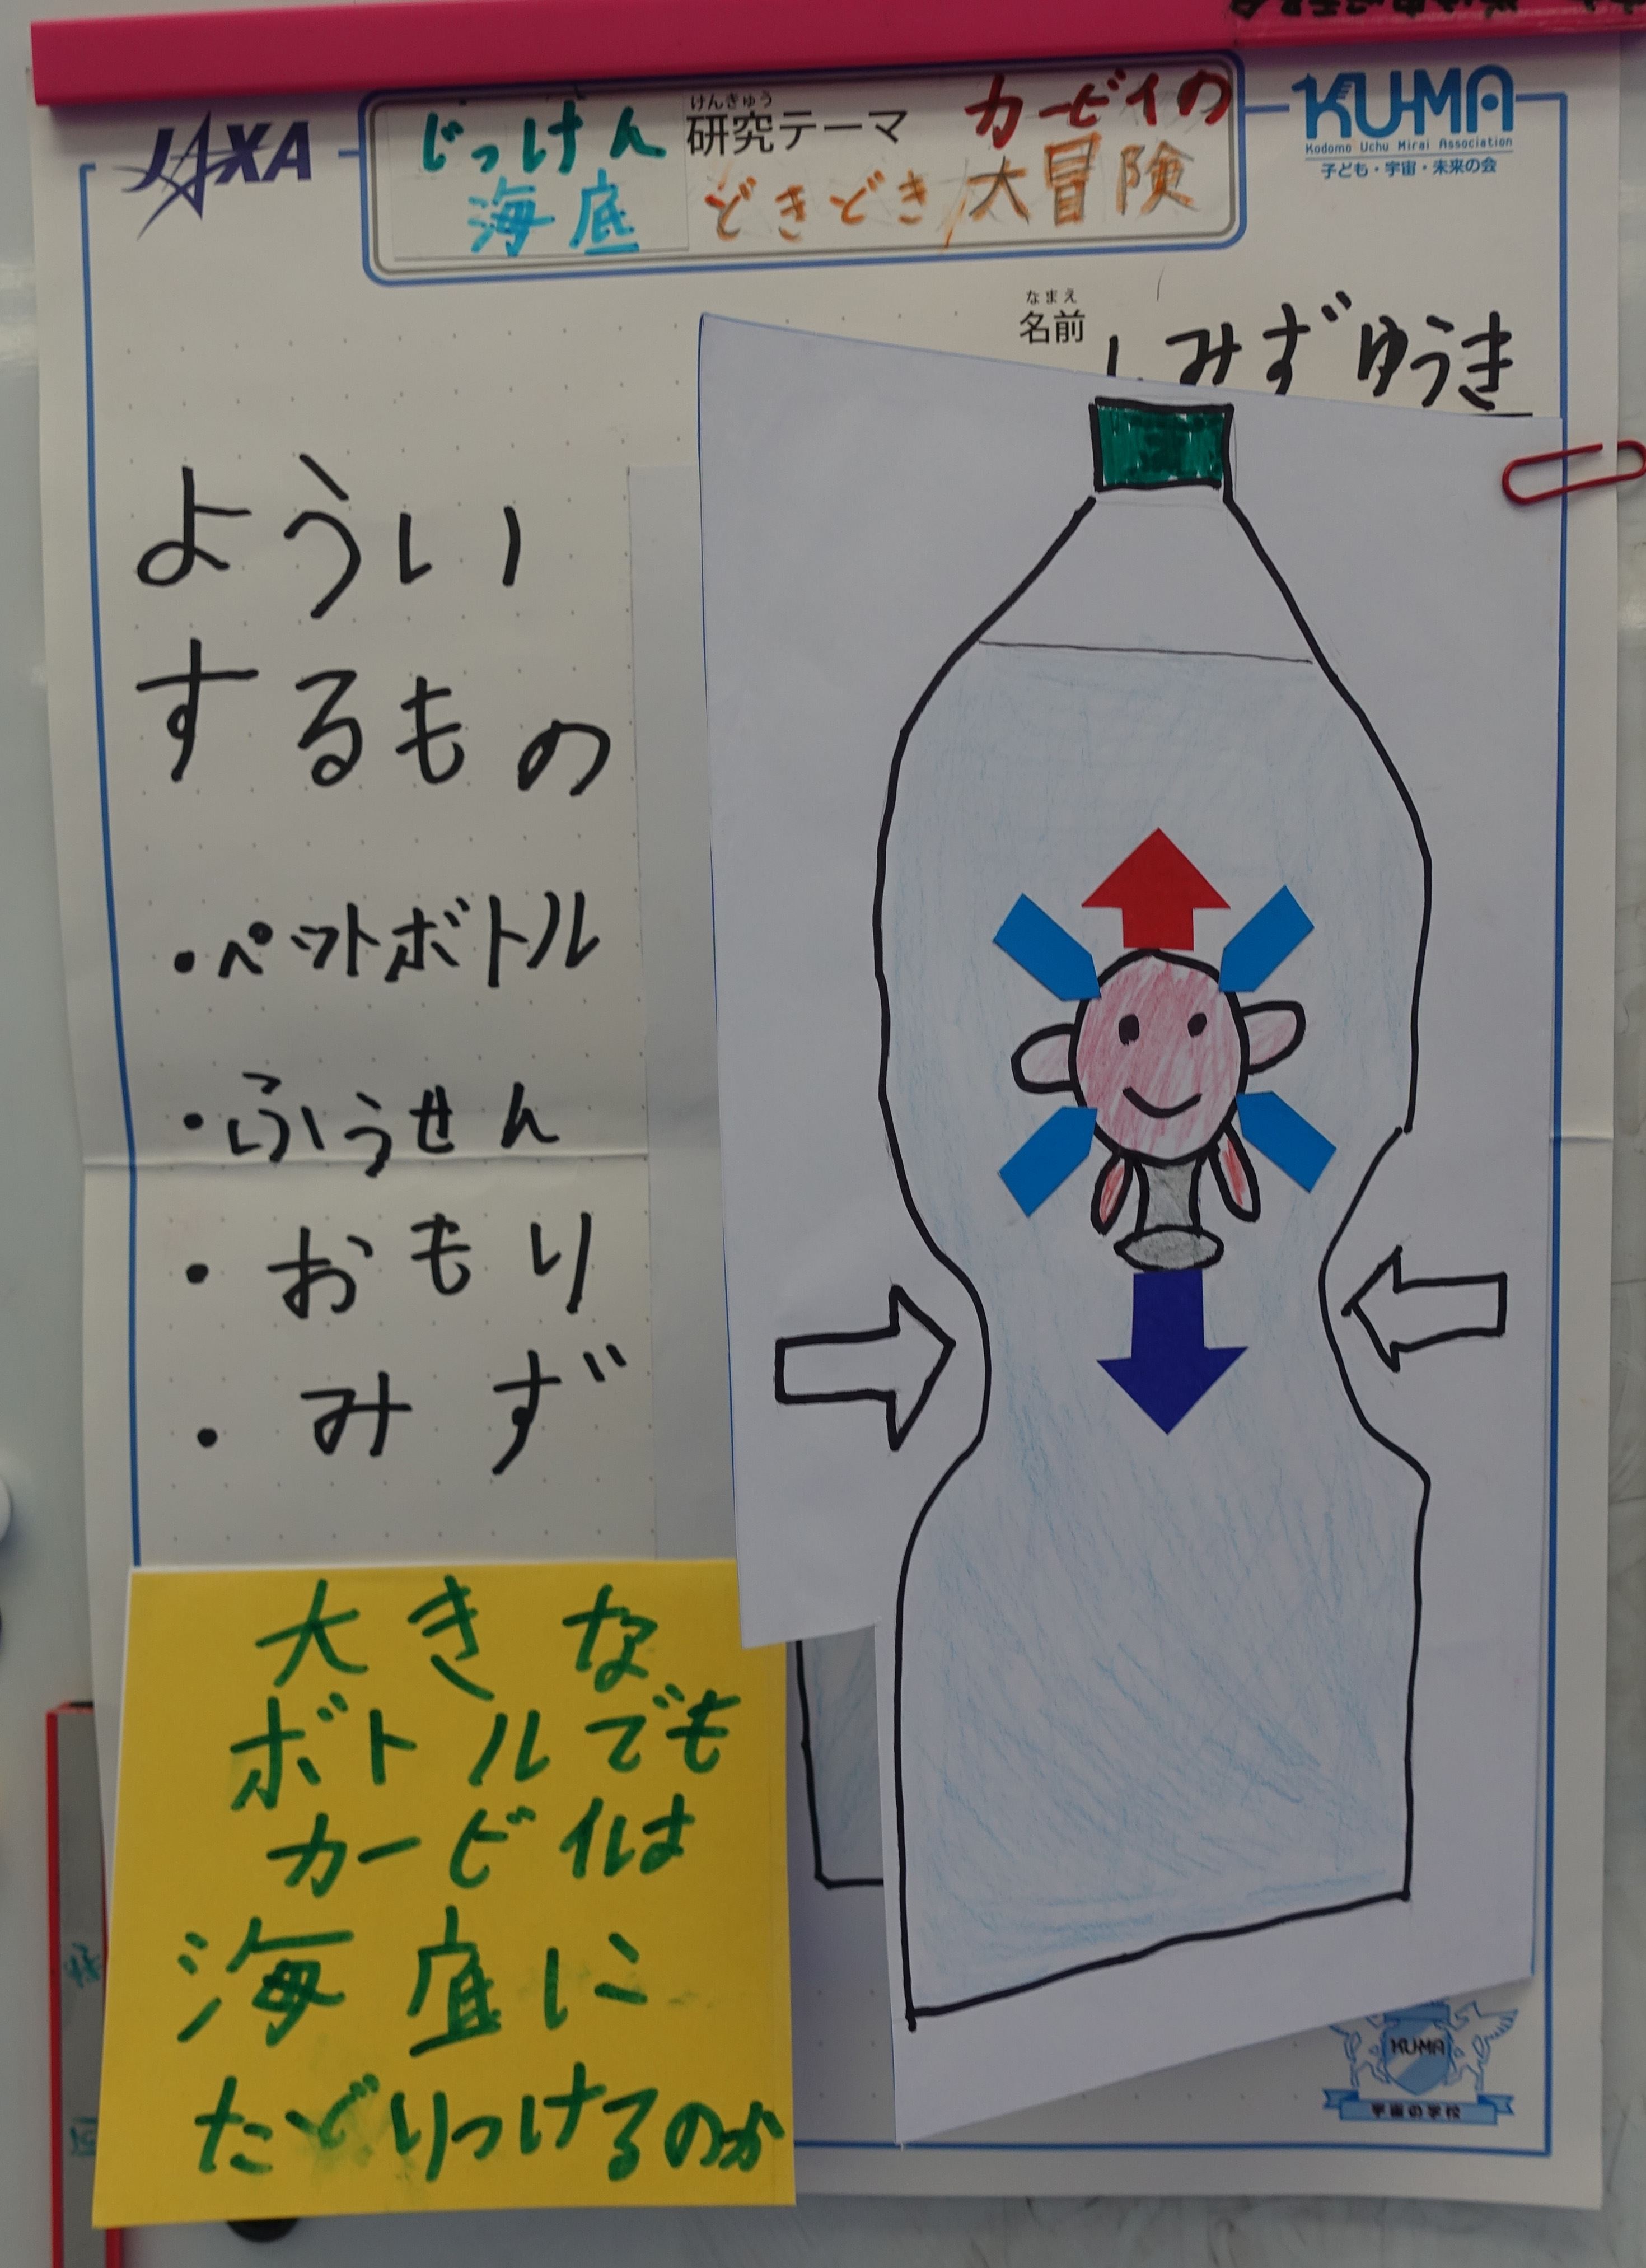 JAXA
けんきゅう
研究テーマ
じっけん カービイの
海底 どきどき大冒険
KUMA
Kodomo Uchu Mirai Association
子ども・宇宙・未来の会
なまえ
名前
しみずゆうき
ようい
するもの
・ペットボトル
・ふうせん
・おもり
・みず
大きな
ボトルでも
カービイは
海底に
たどりつけるのか
KUMA
宇宙の学校